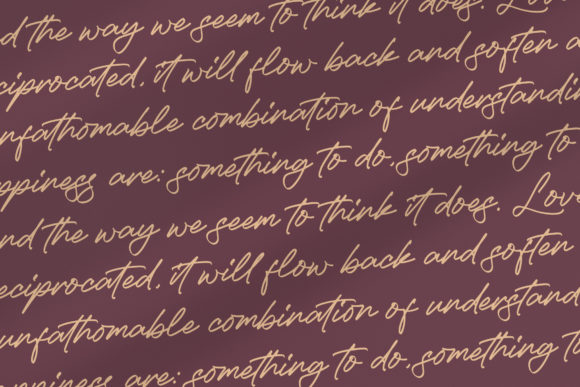 nd the way we seem to think it does. Love
eciprocated, it will flow back and soften a
unfathomable combination of understandin
ppiness are: something to do, something to
nd the way we seem to think it does. Love
eciprocated, it will flow back and soften
unfathomable combination of understand
appiness are: something to do, something to